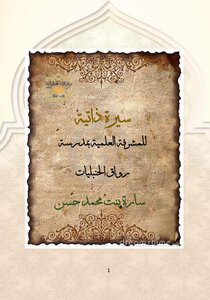 سيرة ذاتية
للمشرفة العلمية بمدرسة
رواق الحنبليات
سارة بنت محمد حسن
1